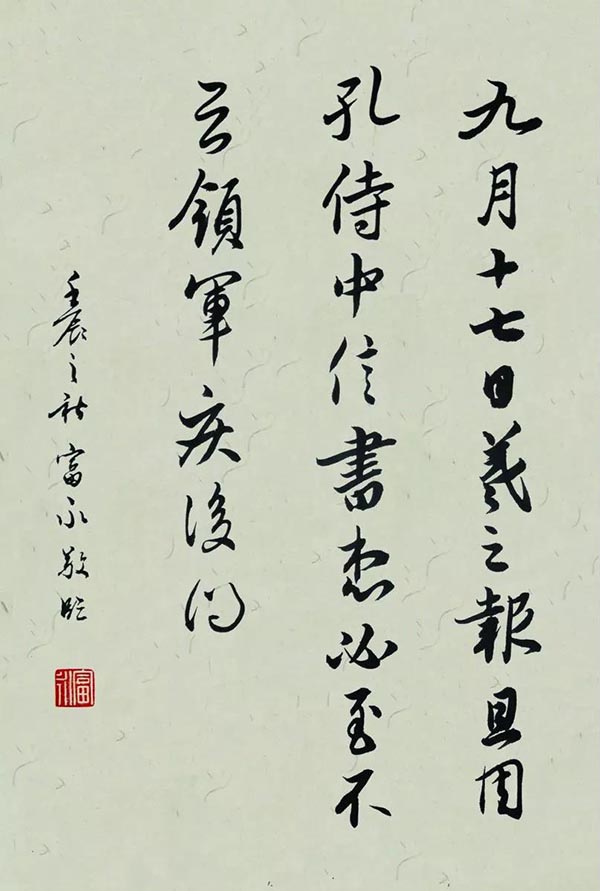 九月十七日羲之報且因
孔侍中信書想必至不
知領軍疾後問
壬辰之秋富永敬臨